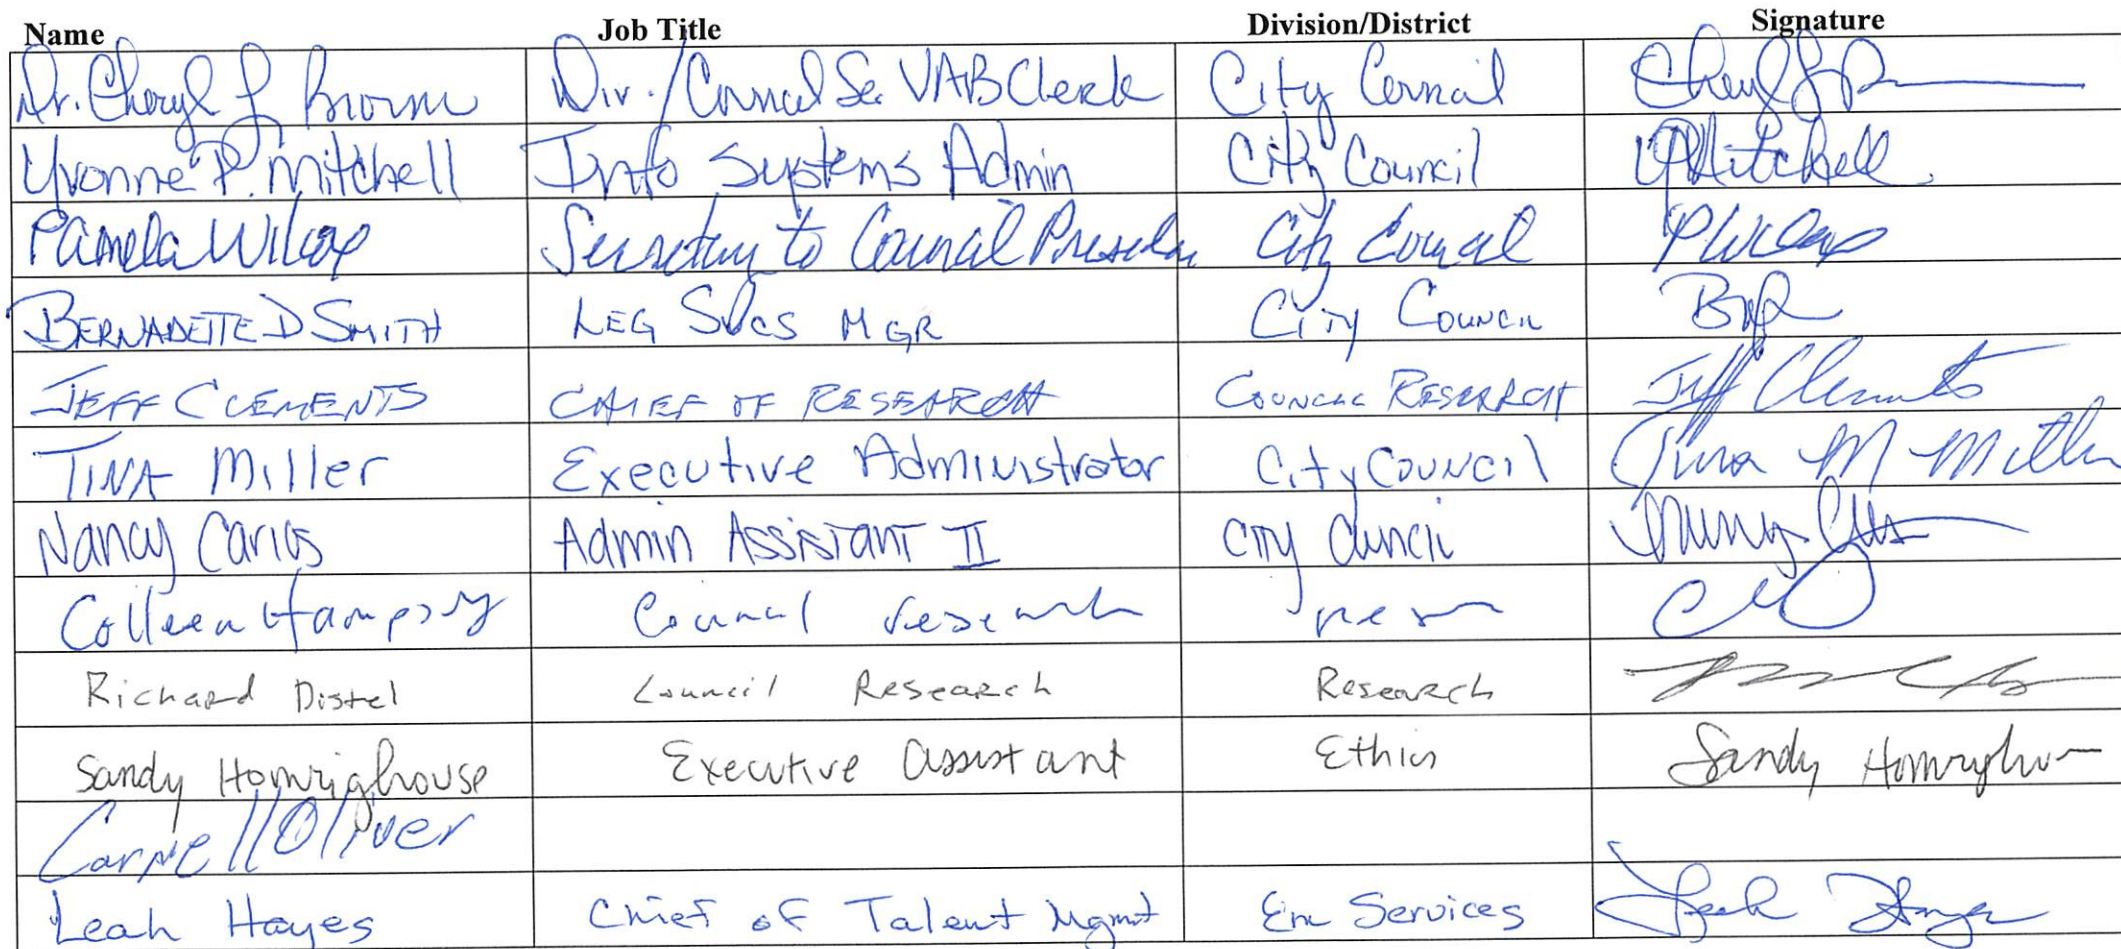 Name Job Title Division/District Signature
Dr. Cheryl L Brown Dir./Council Se. VAB Clerk City Council Cheryl L B
Yvonne P. Mitchell Info Systems Admin City Council YPMitchell
Pamela Wilcox Secretary to Council Presiden City Council PWilcox
BERNADETTE D SMITH LEG SVCS MGR CITY COUNCIL
JEFF CLEMENTS CHIEF OF RESEARCH COUNCIL RESEARCH Jeff Clements
TINA Miller Executive Administrator City Council Tina M Miller
Nancy Carlos Admin Assistant II City Council
Colleen Hampsey Council research
Richard Distel Council Research Research
Sandy Homrighouse Executive Assistant Ethics Sandy Homrighou
Carnell Oliver
Leah Hayes Chief of Talent Mgmt Em Services Leah Hayes